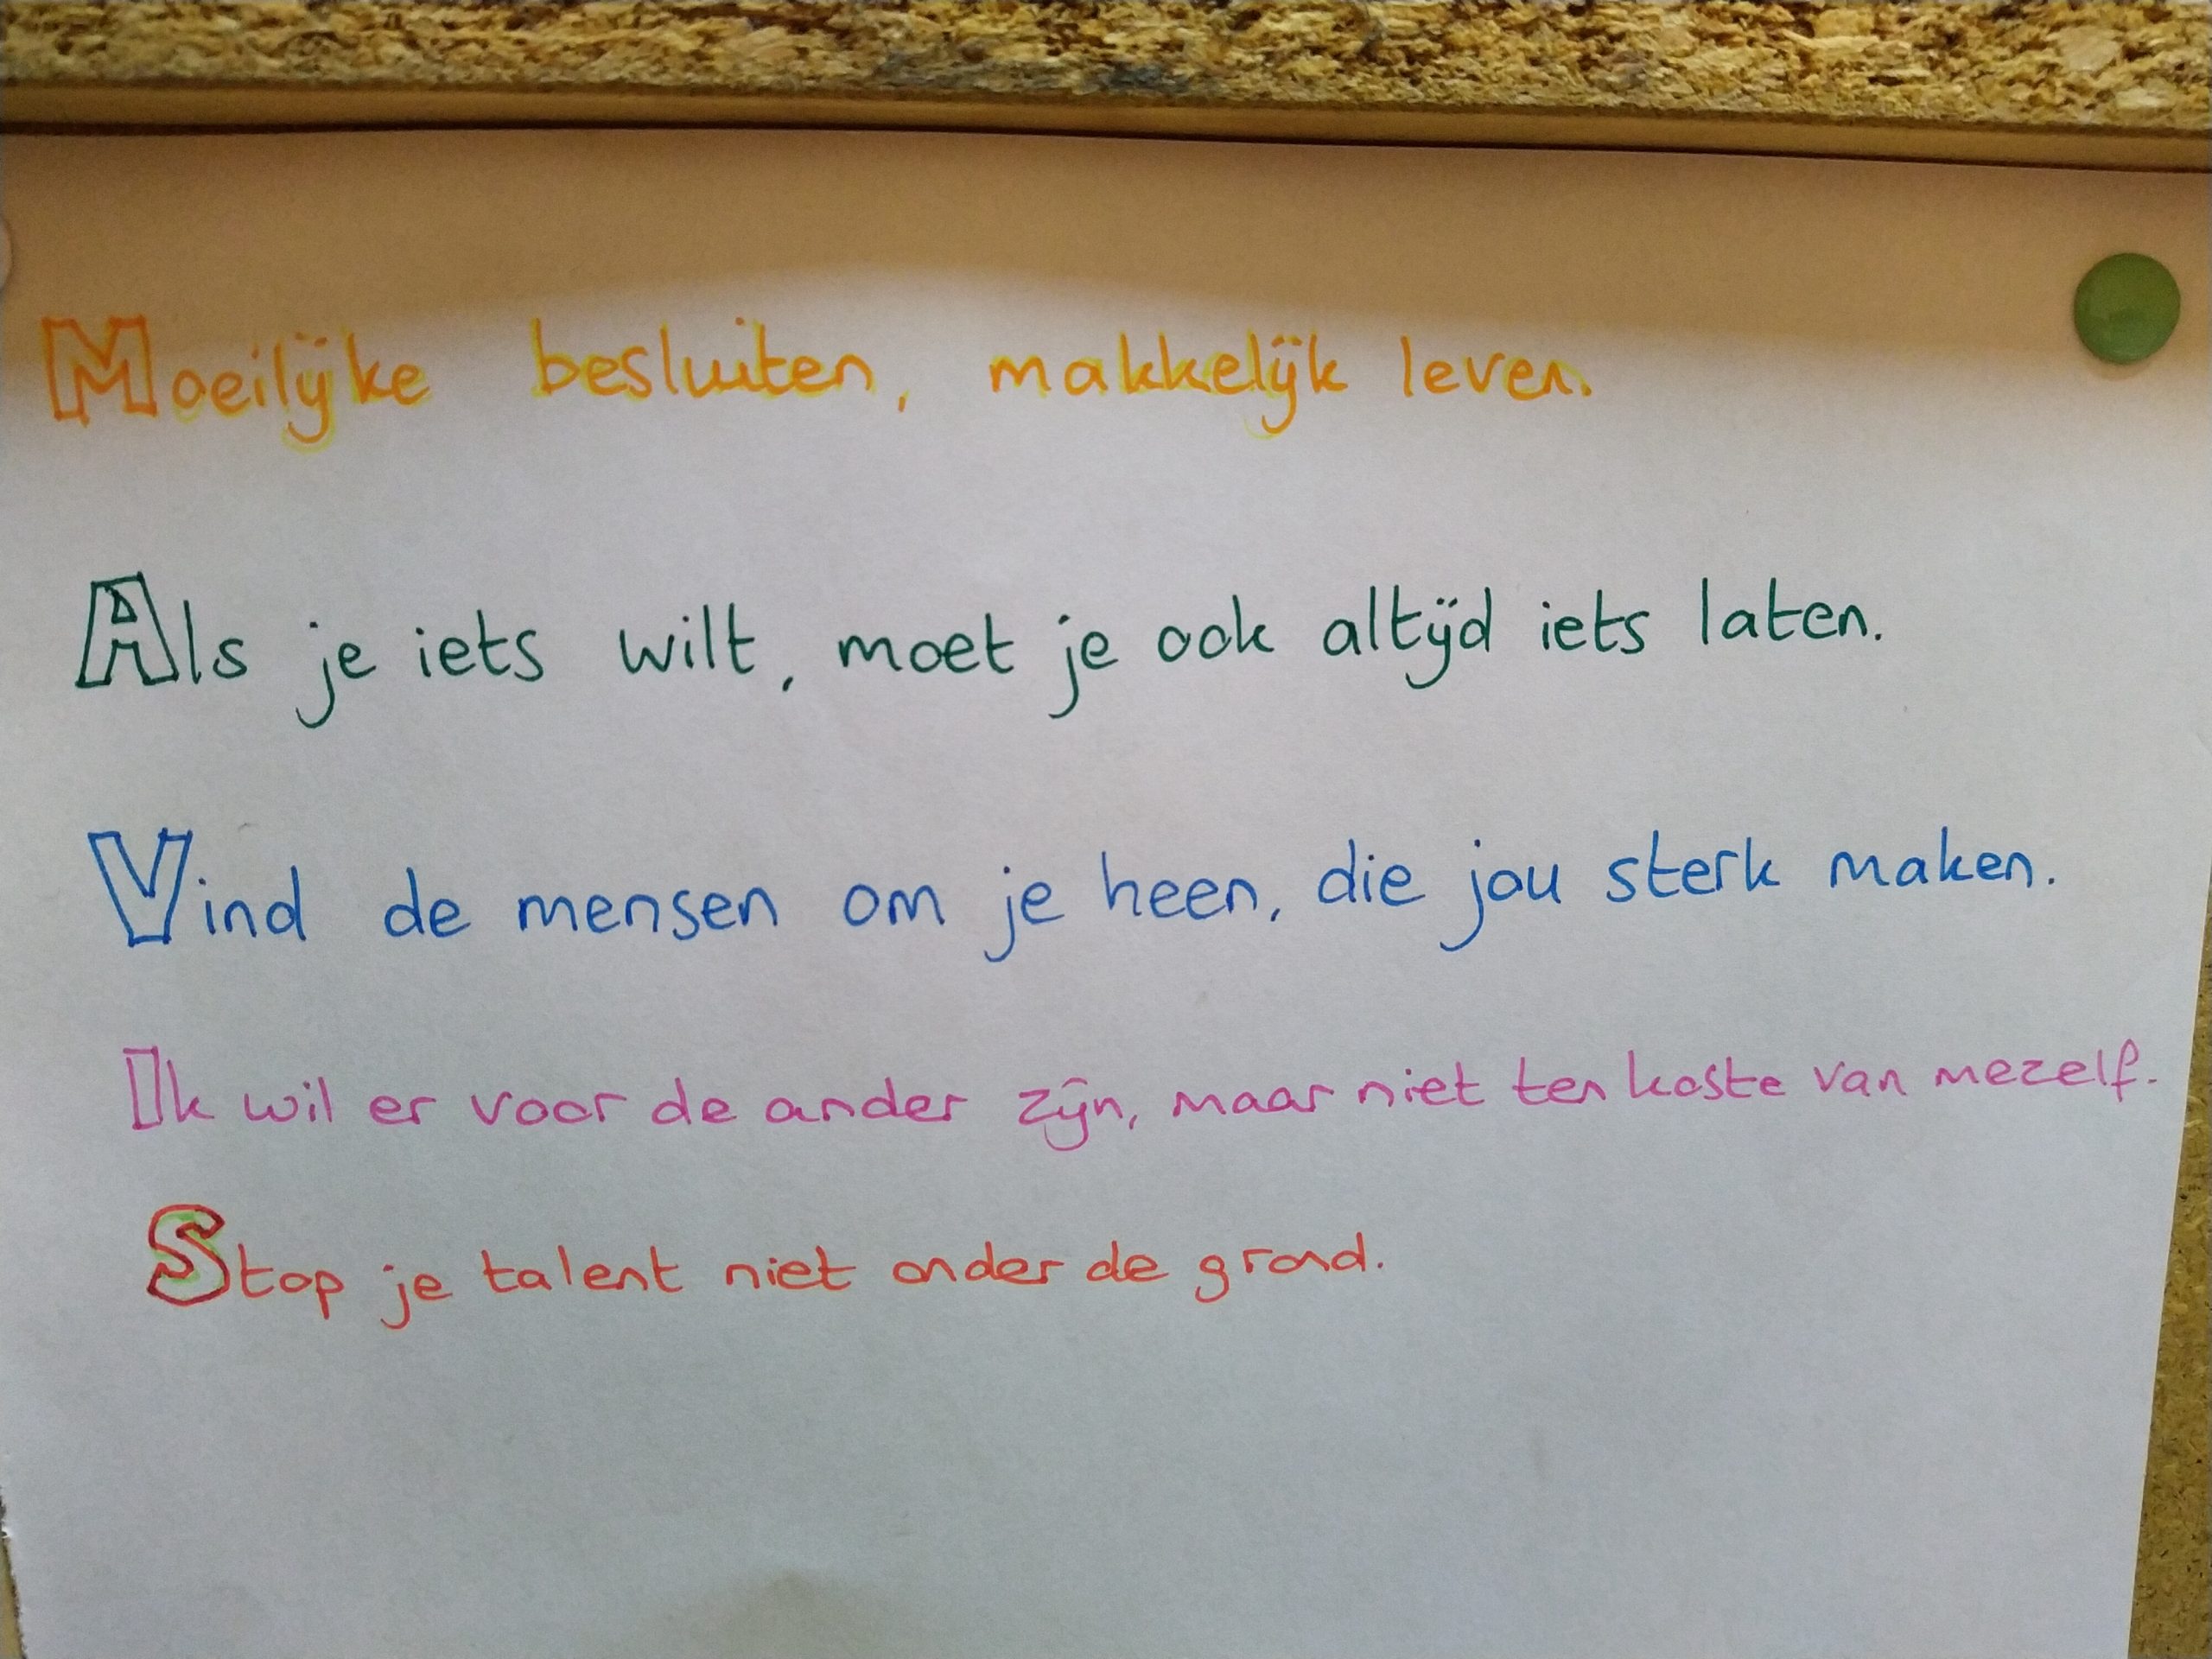 Moeilijke besluiten, makkelijk leven.
Als je iets wilt, moet je ook altijd iets laten.
Vind de mensen om je heen, die jou sterk maken.
Ik wil er voor de ander zijn, maar niet ten koste van mezelf.
Stop je talent niet onder de grond.